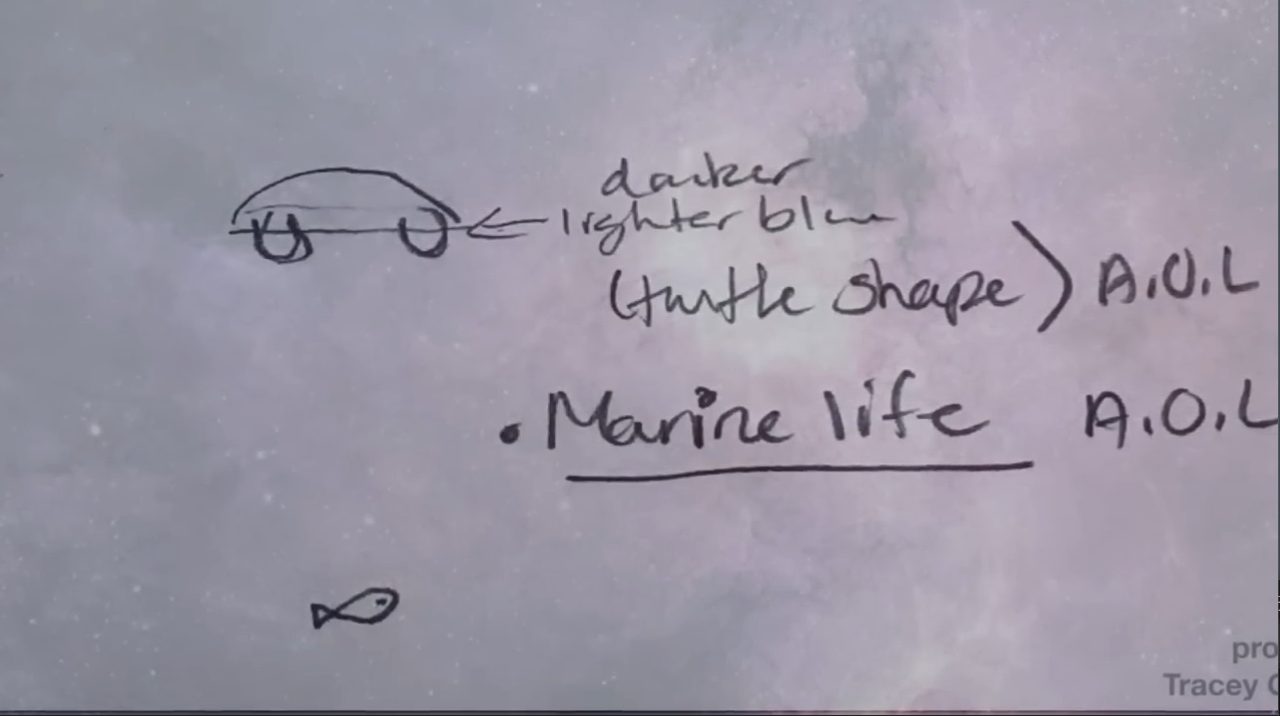 darker
lighter blue
(turtle shape) A.O.L
• Marine life A.O.L
pro
Tracey